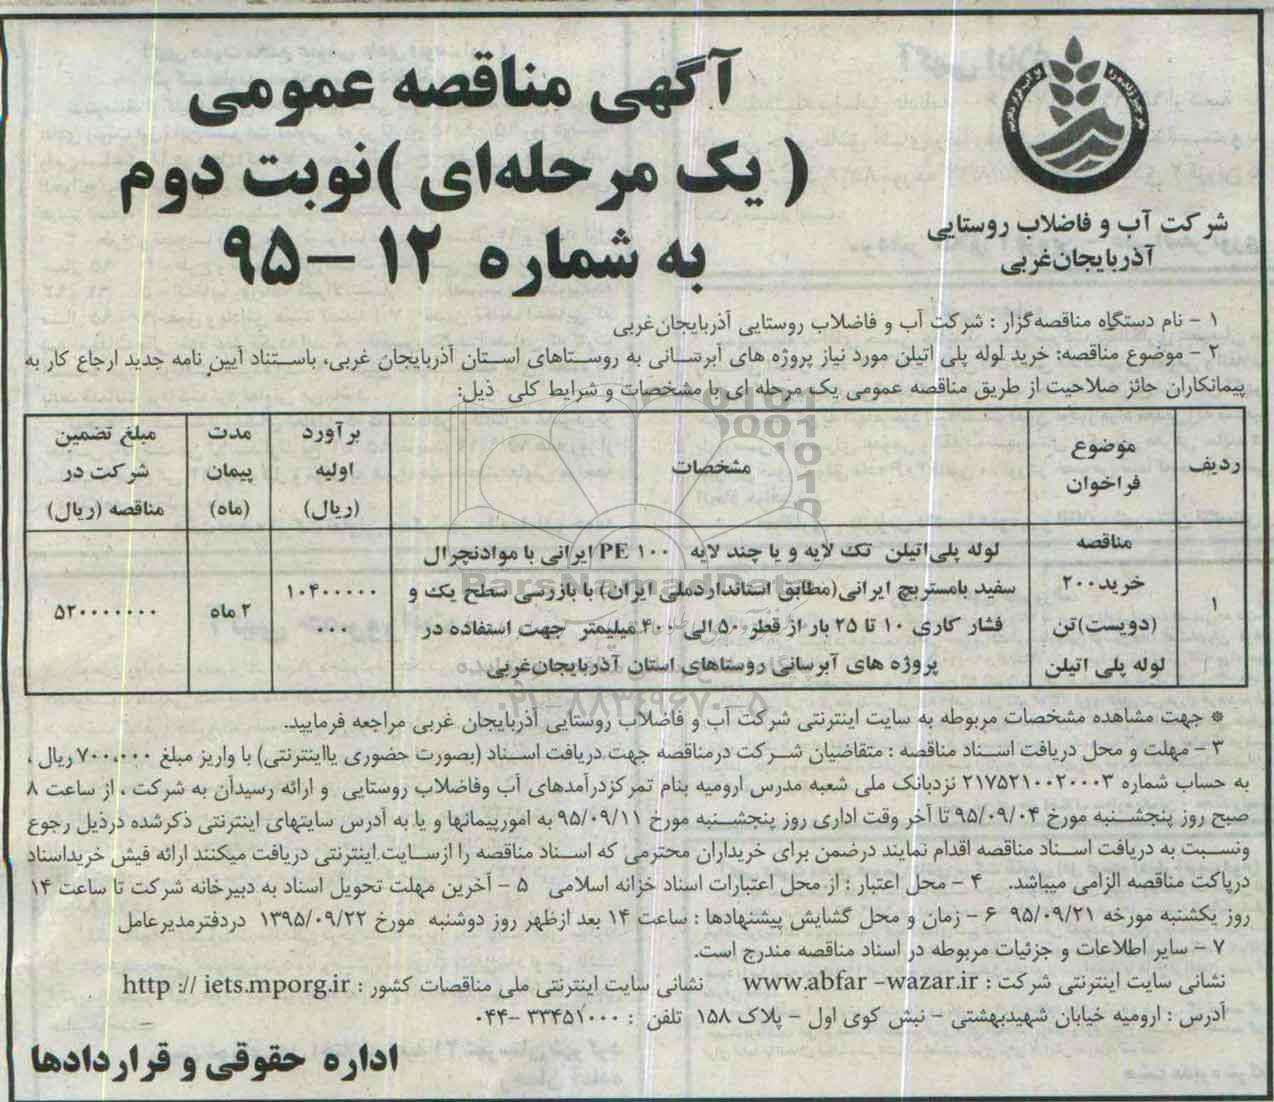 آگهی مناقصه عمومی
( یک مرحله‌ای )نوبت دوم
به شماره ۱۲ –۹۵
شرکت آب و فاضلاب روستایی
آذربایجان‌غربی
۱ – نام دستگاه مناقصه‌گزار : شرکت آب و فاضلاب روستایی آذربایجان‌غربی
۲ – موضوع مناقصه: خرید لوله پلی اتیلن مورد نیاز پروژه های آبرسانی به روستاهای استان آذربایجان غربی، باستناد آیین نامه جدید ارجاع کار به
پیمانکاران حائز صلاحیت از طریق مناقصه عمومی یک مرحله ای با مشخصات و شرایط کلی ذیل:
ردیف
موضوع
فراخوان
مشخصات
برآورد
اولیه
(ریال)
مدت
پیمان
(ماه)
مبلغ تضمین
شرکت در
مناقصه (ریال)
۱
مناقصه
خرید۲۰۰
(دویست)تن
لوله پلی اتیلن
لوله پلی‌اتیلن تک لایه و یا چند لایه PE ۱۰۰ ایرانی با موادنچرال
سفید بامستربچ ایرانی(مطابق استانداردملی ایران) با بازرسی سطح یک و
فشار کاری ۱۰ تا ۲۵ بار از قطر ۵۰ الی ۴۰۰ میلیمتر جهت استفاده در
پروژه های آبرسانی روستاهای استان آذربایجان‌غربی
۱۰۴۰۰۰۰۰
۰۰۰
۲ ماه
۵۲۰۰۰۰۰۰۰
* جهت مشاهده مشخصات مربوطه به سایت اینترنتی شرکت آب و فاضلاب روستایی آذربایجان غربی مراجعه فرمایید.
۳ – مهلت و محل دریافت اسناد مناقصه : متقاضیان شرکت درمناقصه جهت دریافت اسناد (بصورت حضوری یااینترنتی) با واریز مبلغ ۷۰۰،۰۰۰ ریال ،
به حساب شماره ۲۱۷۵۲۱۰۰۲۰۰۰۳ نزدبانک ملی شعبه مدرس ارومیه بنام تمرکزدرآمدهای آب وفاضلاب روستایی و ارائه رسیدآن به شرکت ، از ساعت ۸
صبح روز پنجشنبه مورخ ۹۵/۰۹/۰۴ تا آخر وقت اداری روز پنجشنبه مورخ ۹۵/۰۹/۱۱ به امورپیمانها و یا به آدرس سایتهای اینترنتی ذکرشده درذیل رجوع
ونسبت به دریافت اسناد مناقصه اقدام نمایند درضمن برای خریداران محترمی که اسناد مناقصه را ازسایت اینترنتی دریافت میکنند ارائه فیش خریداسناد
درپاکت مناقصه الزامی میباشد. ۴ – محل اعتبار : از محل اعتبارات اسناد خزانه اسلامی ۵ – آخرین مهلت تحویل اسناد به دبیرخانه شرکت تا ساعت ۱۴
روز یکشنبه مورخه ۹۵/۰۹/۲۱ ۶ – زمان و محل گشایش پیشنهادها : ساعت ۱۴ بعد ازظهر روز دوشنبه مورخ ۱۳۹۵/۰۹/۲۲ دردفترمدیرعامل
۷ – سایر اطلاعات و جزئیات مربوطه در اسناد مناقصه مندرج است.
نشانی سایت اینترنتی شرکت : www.abfar –wazar.ir نشانی سایت اینترنتی ملی مناقصات کشور : http :// iets.mporg.ir
آدرس : ارومیه خیابان شهیدبهشتی – نبش کوی اول – پلاک ۱۵۸ تلفن : ۳۳۴۵۱۰۰۰ –۰۴۴
اداره حقوقی و قراردادها
ParsNamadData
۰۲۱-۸۸۳۴۹۶۷۰-۵